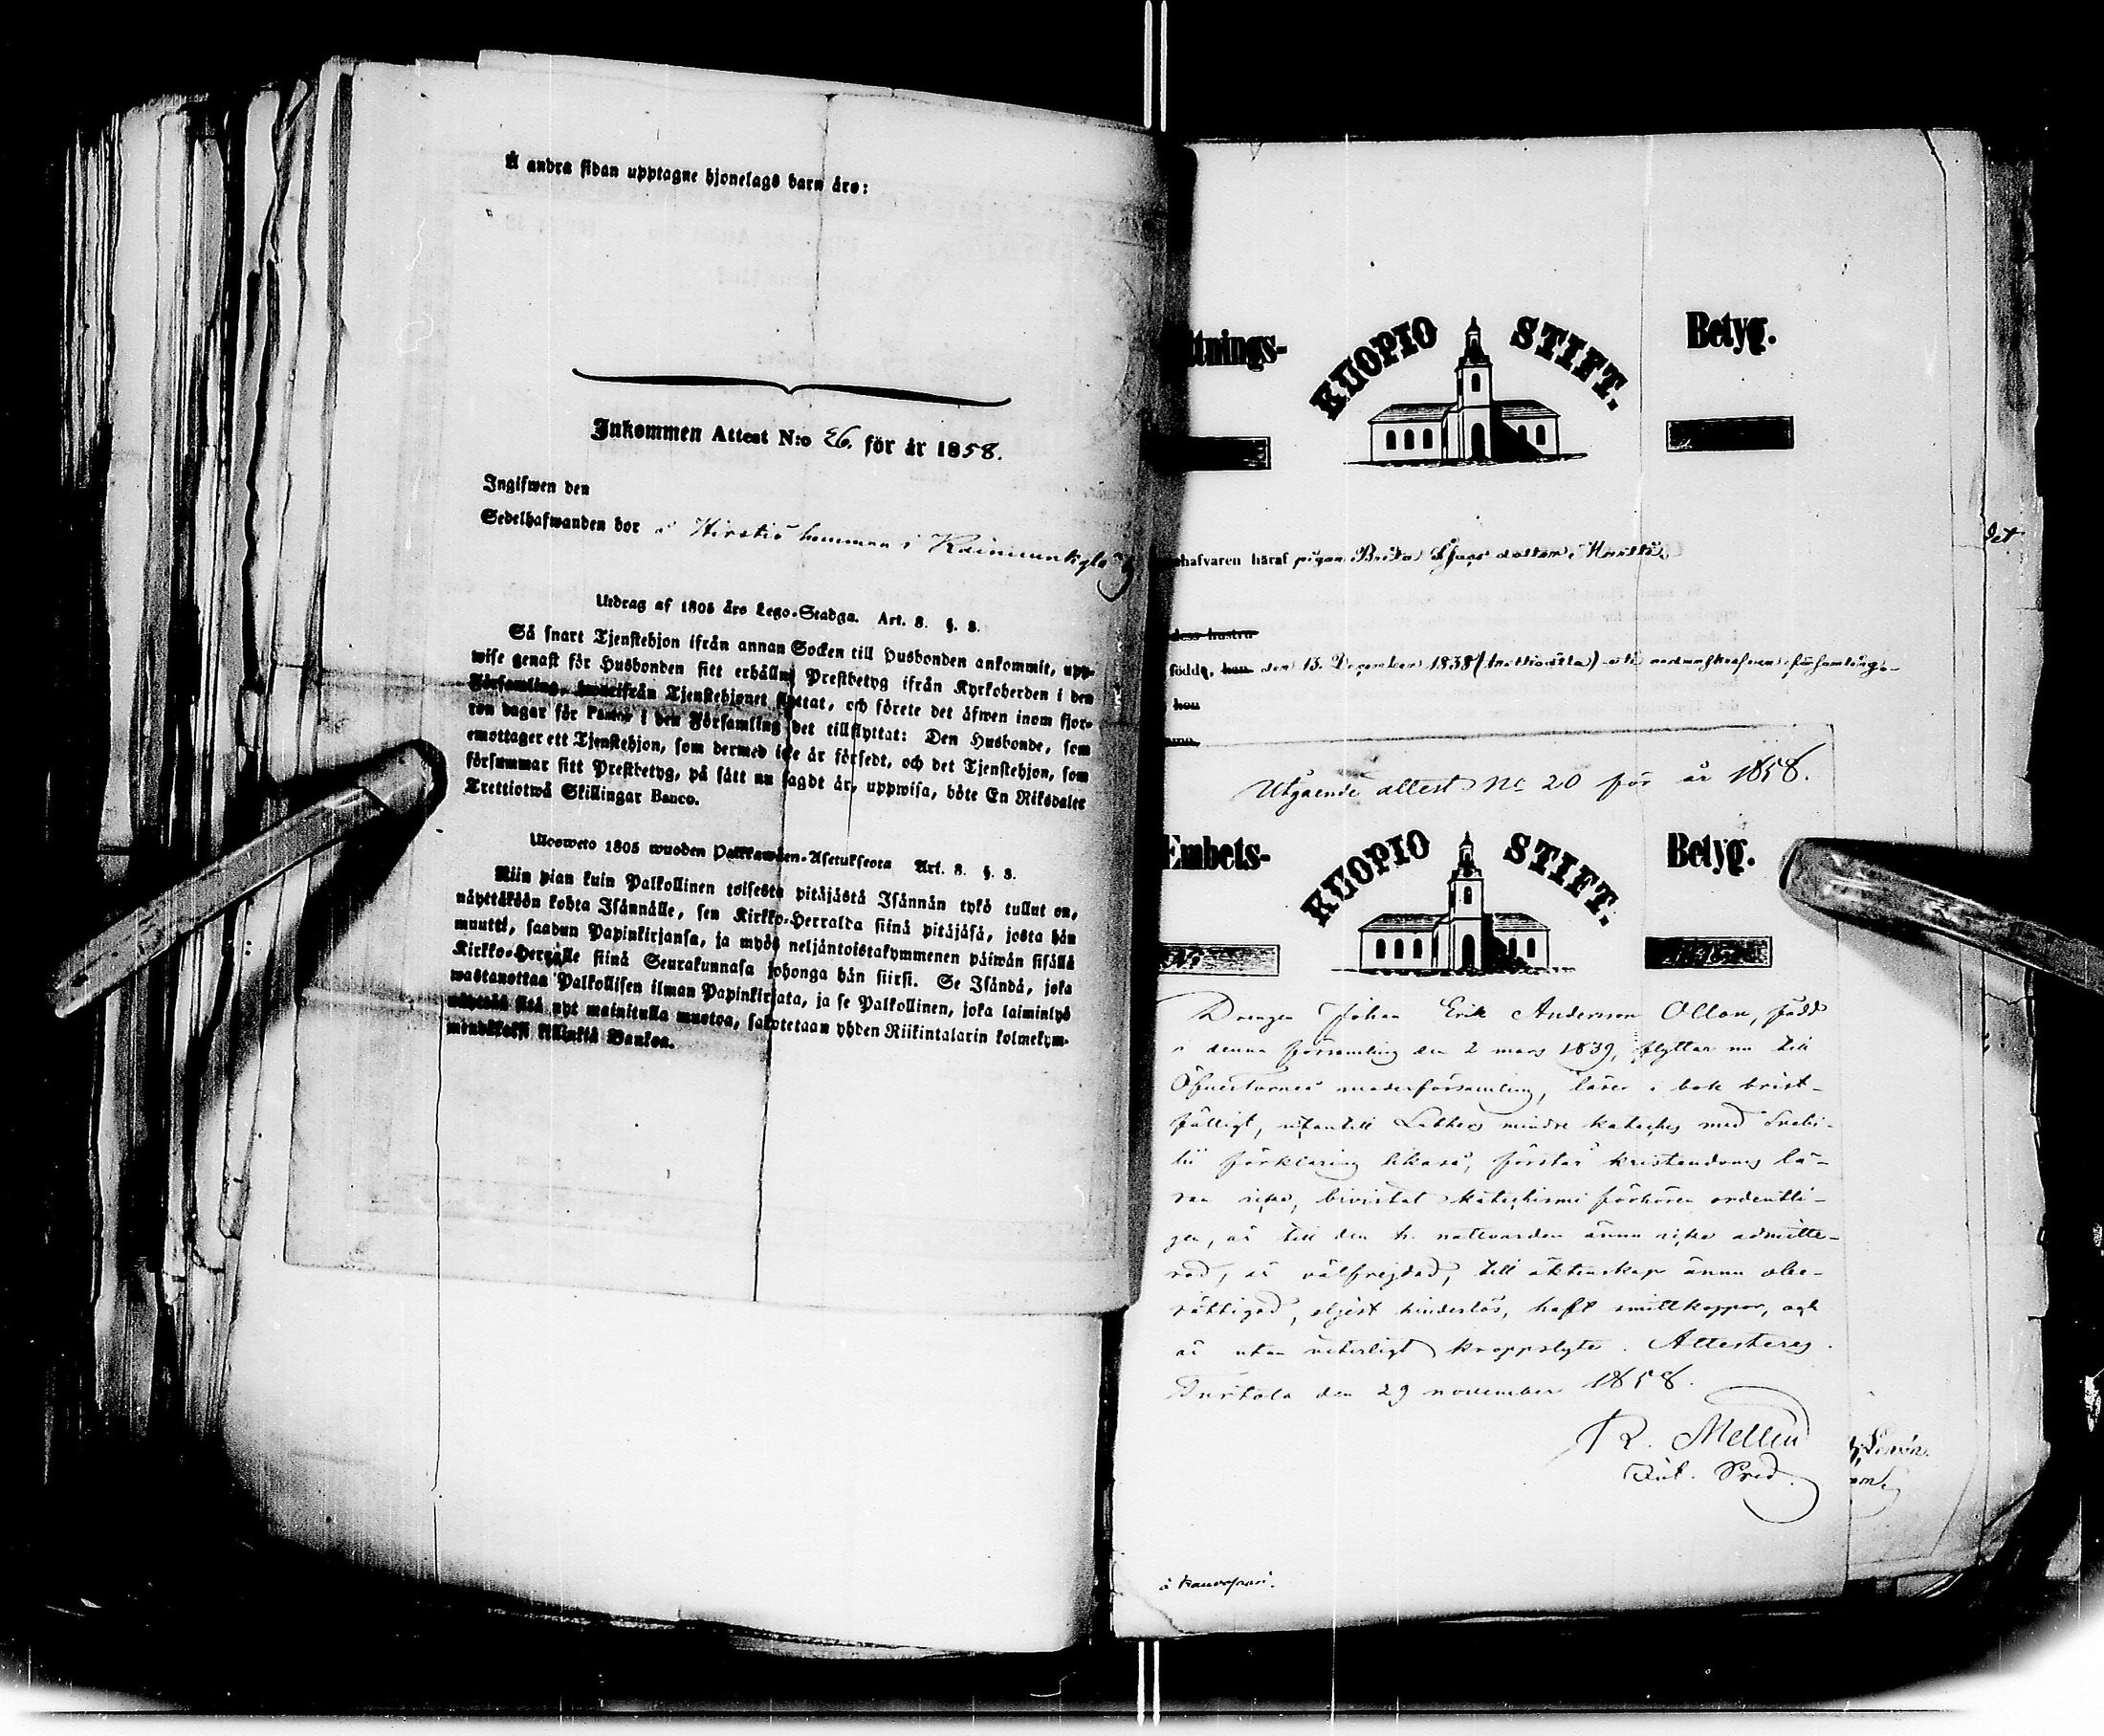 Å andra sidan upptagne hjonelags barn äro:
Inkommen Attest N:o 26. för år 1858.
Ingifwen den
Sedelhafwanden bor å Hirstiö hemman i Kainuunkylä by
Utdrag af 1805 års Lego-Stadga. Art. 8. §. 8.
Så snart Tjenstehjon ifrån annan Socken till Husbonden ankommit, upp-
wise genast för Husbonden sitt erhållne Prestbetyg ifrån Kyrkoherden i den
Församling, hwarifrån Tjenstehjonet flyttat, och förete det äfwen inom fjor-
ton dagar för Pastor i den Församling det tillflyttat: Den Husbonde, som
emottager ett Tjenstehjon, som dermed icke är försedt, och det Tjenstehjon, som
försummar sitt Prestbetyg, på sätt nu sagdt är, uppwisa, böte En Riksdaler
Trettiotwå Skillingar Banco.
Ulosweto 1805 wuoden Palkkawäen-Asetuksesta Art. 8. §. 8.
Niin pian kuin Palkollinen toisesta pitäjästä Isännän tykö tullut on,
näyttäköön kohta Isännälle, sen Kirkko-Herralta siinä pitäjäsä, josta hän
muutti, saadun Papinkirjansa, ja myös neljäntoistakymmenen päiwän sisällä
Kirkko-Herralle siinä Seurakunnasa johonga hän siirsi. Se Isändä, joka
wastanottaa Palkollisen ilman Papinkirjata, ja se Palkollinen, joka laiminlyö
näyttää sitä nyt mainitulla muotoa, sakotetaan yhden Riikintalarin kolmekym-
mendäkaksi killinkiä Bankoa.
ttnings- KUOPIO STIFT. Betyg.
det
hafvaren häraf pigan Brita dotter
dess hustru
född, hon den 13 December 1838 (trettioåtta)
hon
Utgående attest No 20 för år 1858.
Embets- KUOPIO STIFT. Betyg.
No
Drengen Johan Erik Andersson Ollon, född
i denna församling den 2 mars 1839, flyttar nu till
Öfvertorneå moderförsamling, läser i bok brist-
fälligt, utantill Luthers mindre kateches med Svebi-
lii förklaring likaså, förstår kristendoms lä-
ran icke, bivistat katechismi förhören ordentli-
gen, är till den h. nattvarden ännu icke admitte-
rad, är välfrejdad, till äktenskap ännu obe-
rättigad, eljest hinderlös, haft smittkoppor, och
är utan veterligt kroppslyte. Attesteras.
Turtola den 29 november 1858.
R. Mellin
Pred.